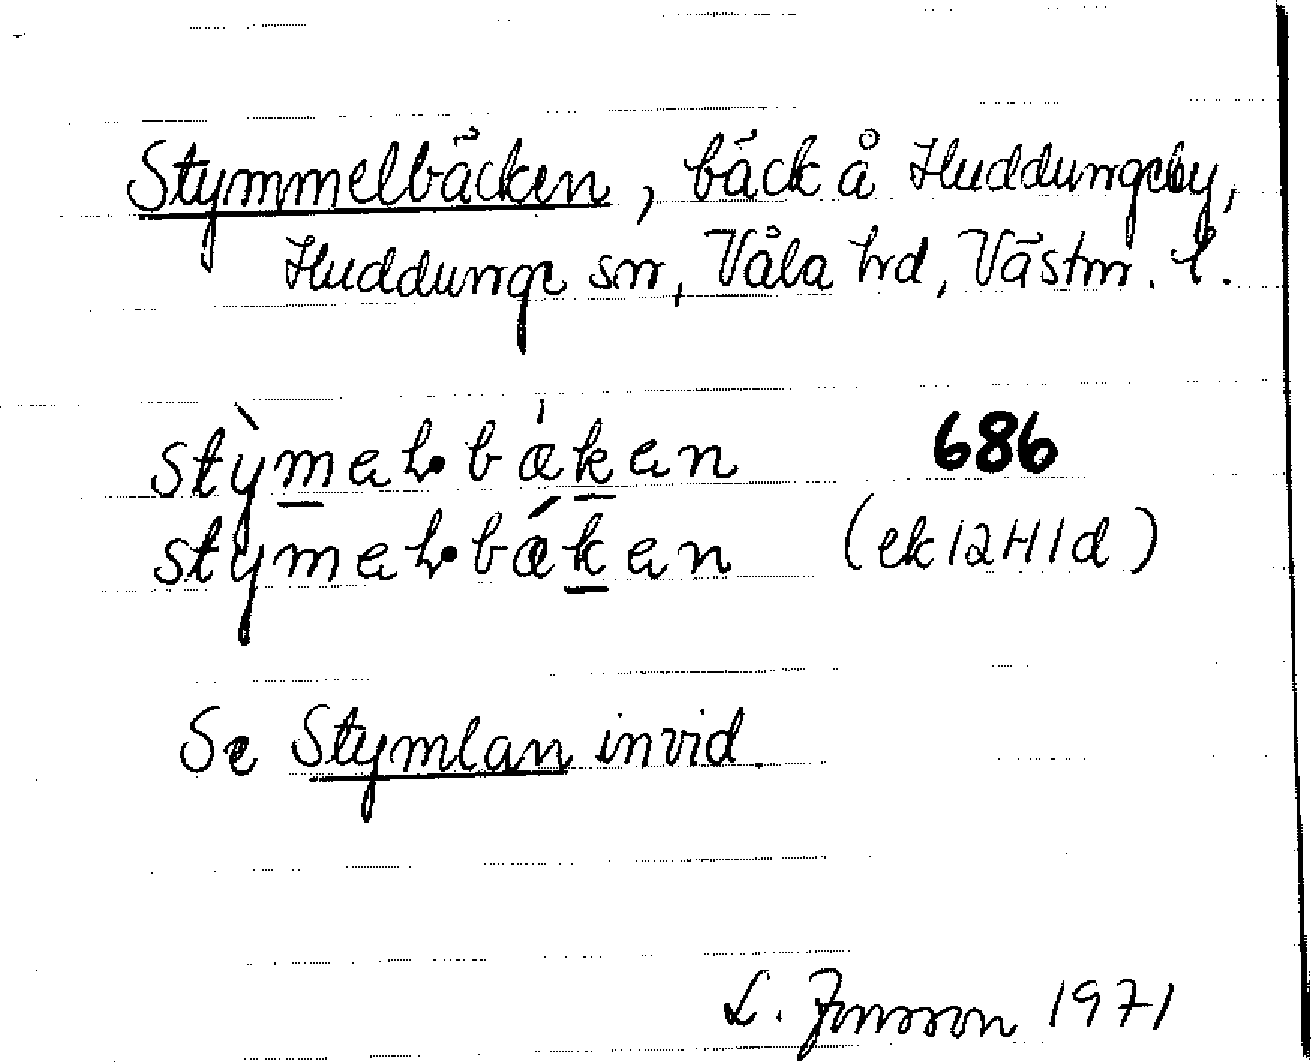 Stymmelbäcken, bäck å Huddungeby,
Huddunge sn, Våla hrd, Västm. l.
stỳmeḷbǽken 686
stymeḷbǽken (ek 12H1d)
Se Stymlan invid.
L. Jonsson 1971